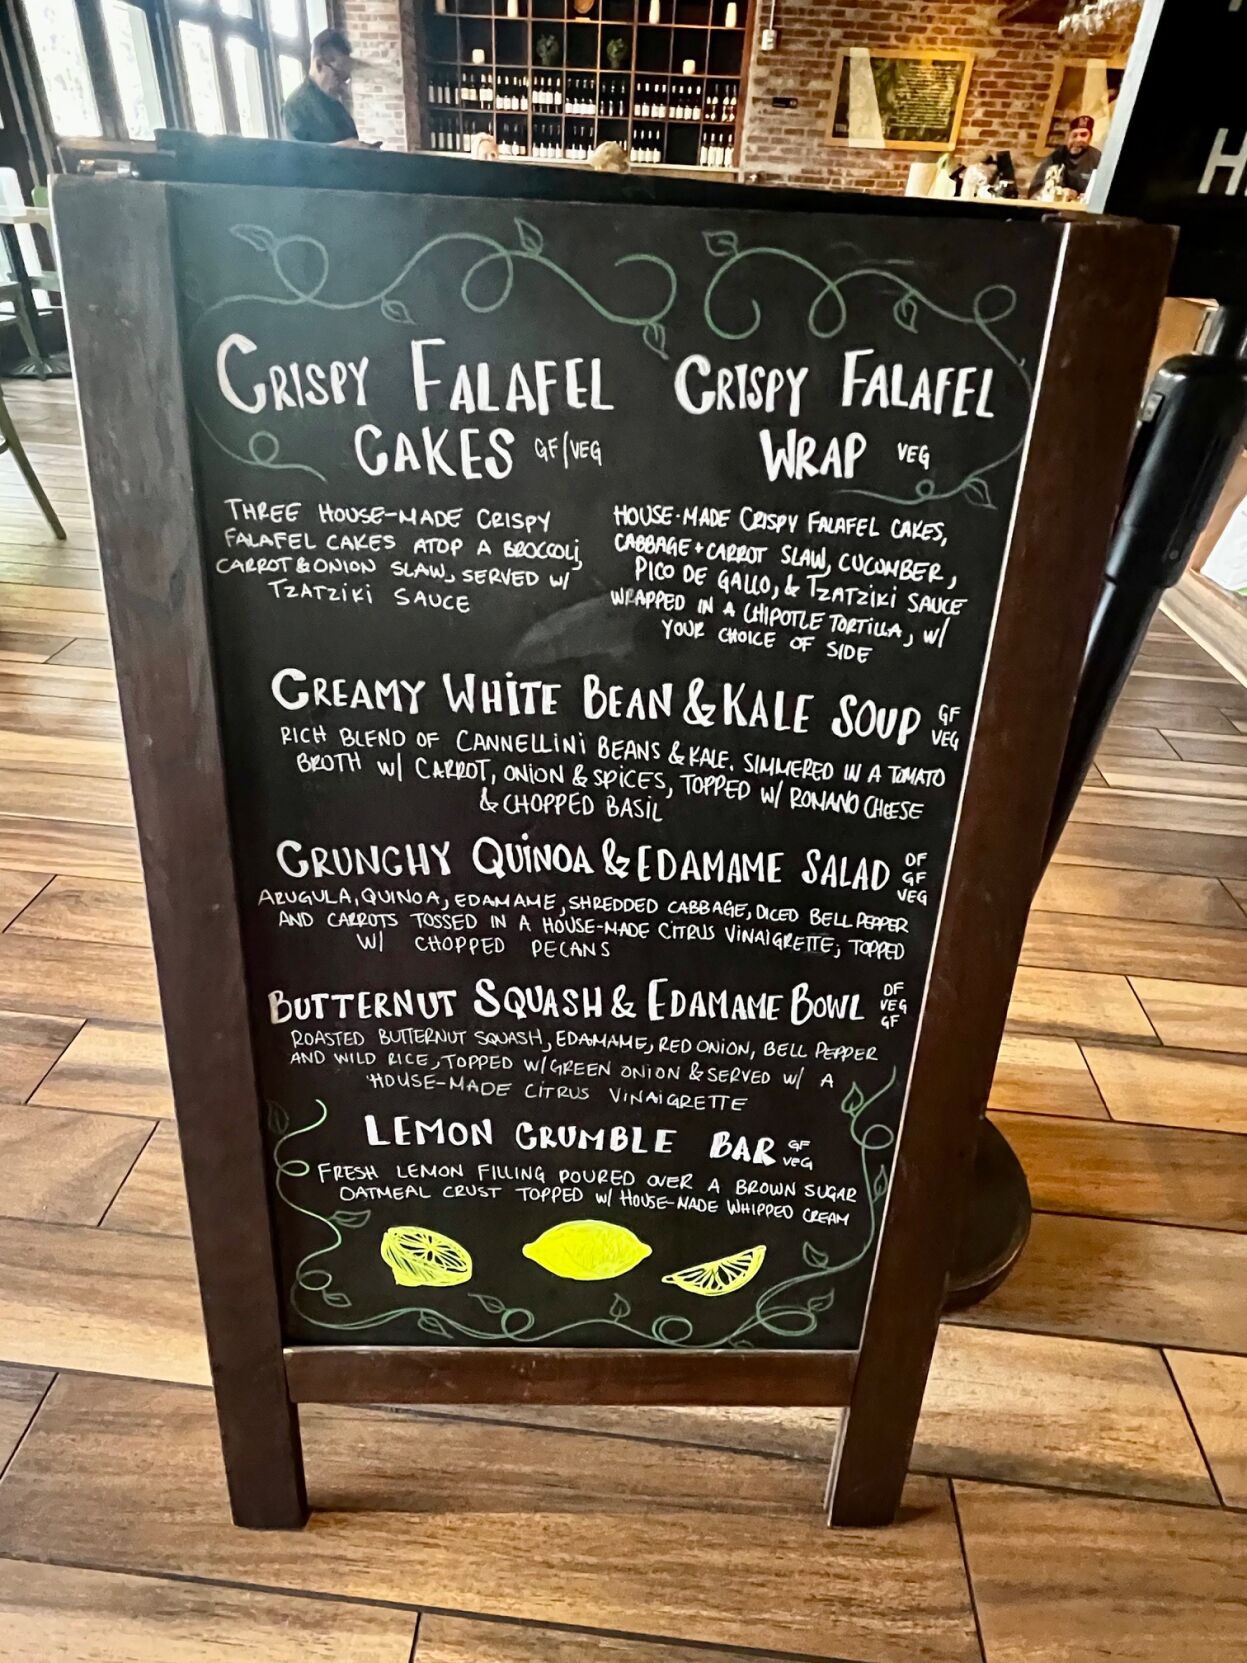 H
CRISPY FALAFEL
CAKES GF/VEG
THREE HOUSE-MADE CRISPY
FALAFEL CAKES ATOP A BROCCOLI,
CARROT & ONION SLAW, SERVED W/
TZATZIKI SAUCE
CRISPY FALAFEL
WRAP VEG
HOUSE-MADE CRISPY FALAFEL CAKES,
CABBAGE + CARROT SLAW, CUCUMBER,
PICO DE GALLO, & TZATZIKI SAUCE
WRAPPED IN A CHIPOTLE TORTILLA, W/
YOUR CHOICE OF SIDE
CREAMY WHITE BEAN & KALE SOUP GF VEG
RICH BLEND OF CANNELLINI BEANS & KALE. SIMMERED IN A TOMATO
BROTH W/ CARROT, ONION & SPICES, TOPPED W/ ROMANO CHEESE
& CHOPPED BASIL
CRUNCHY QUINOA & EDAMAME SALAD DF GF VEG
ARUGULA, QUINOA, EDAMAME, SHREDDED CABBAGE, DICED BELL PEPPER
AND CARROTS TOSSED IN A HOUSE-MADE CITRUS VINAIGRETTE; TOPPED
W/ CHOPPED PECANS
BUTTERNUT SQUASH & EDAMAME BOWL DF VEG GF
ROASTED BUTTERNUT SQUASH, EDAMAME, RED ONION, BELL PEPPER
AND WILD RICE, TOPPED W/ GREEN ONION & SERVED W/ A
HOUSE-MADE CITRUS VINAIGRETTE
LEMON CRUMBLE BAR GF VEG
FRESH LEMON FILLING POURED OVER A BROWN SUGAR
OATMEAL CRUST TOPPED W/ HOUSE-MADE WHIPPED CREAM